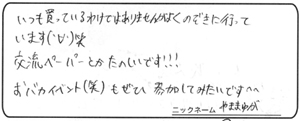 いつも買っているわけではありませんがよくのぞきに行って
います(˙∀˙)笑
交流ペーパーとかたのしいです!!!
おバカイベント(笑)もぜひ参加してみたいです^^
ニックネーム やままゆが